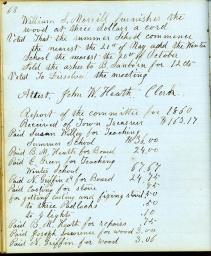 68
William S. Merrill furnishes the
wood at three dollars a cord
Voted That the summer School commence
the nearest the 21st of May and the Winter
School the nearest the 20th of October
Sold the ashes to B. Sanborn for 12 cts
Voted To Dissolve the meeting
Attest, John W. Heath Clerk
Report of the committee for 1860
Received of Town Treasurer $163.17
Paid Susan Willey for Teaching
Summer School 36.00
Paid B. M. Heath for Board 24.00
Paid E. Green for Teaching
Winter School 67.67
Paid N. Griffin Jr for Board 24.75
Paid for stone .75
for getting and fixing stove .50
to three Padlocks .50
to 4 lights .10
Paid B. M. Heath for repairs .75
Paid Joseph Lawrence for wood 3.00
Paid N. Griffin for wood 3.00